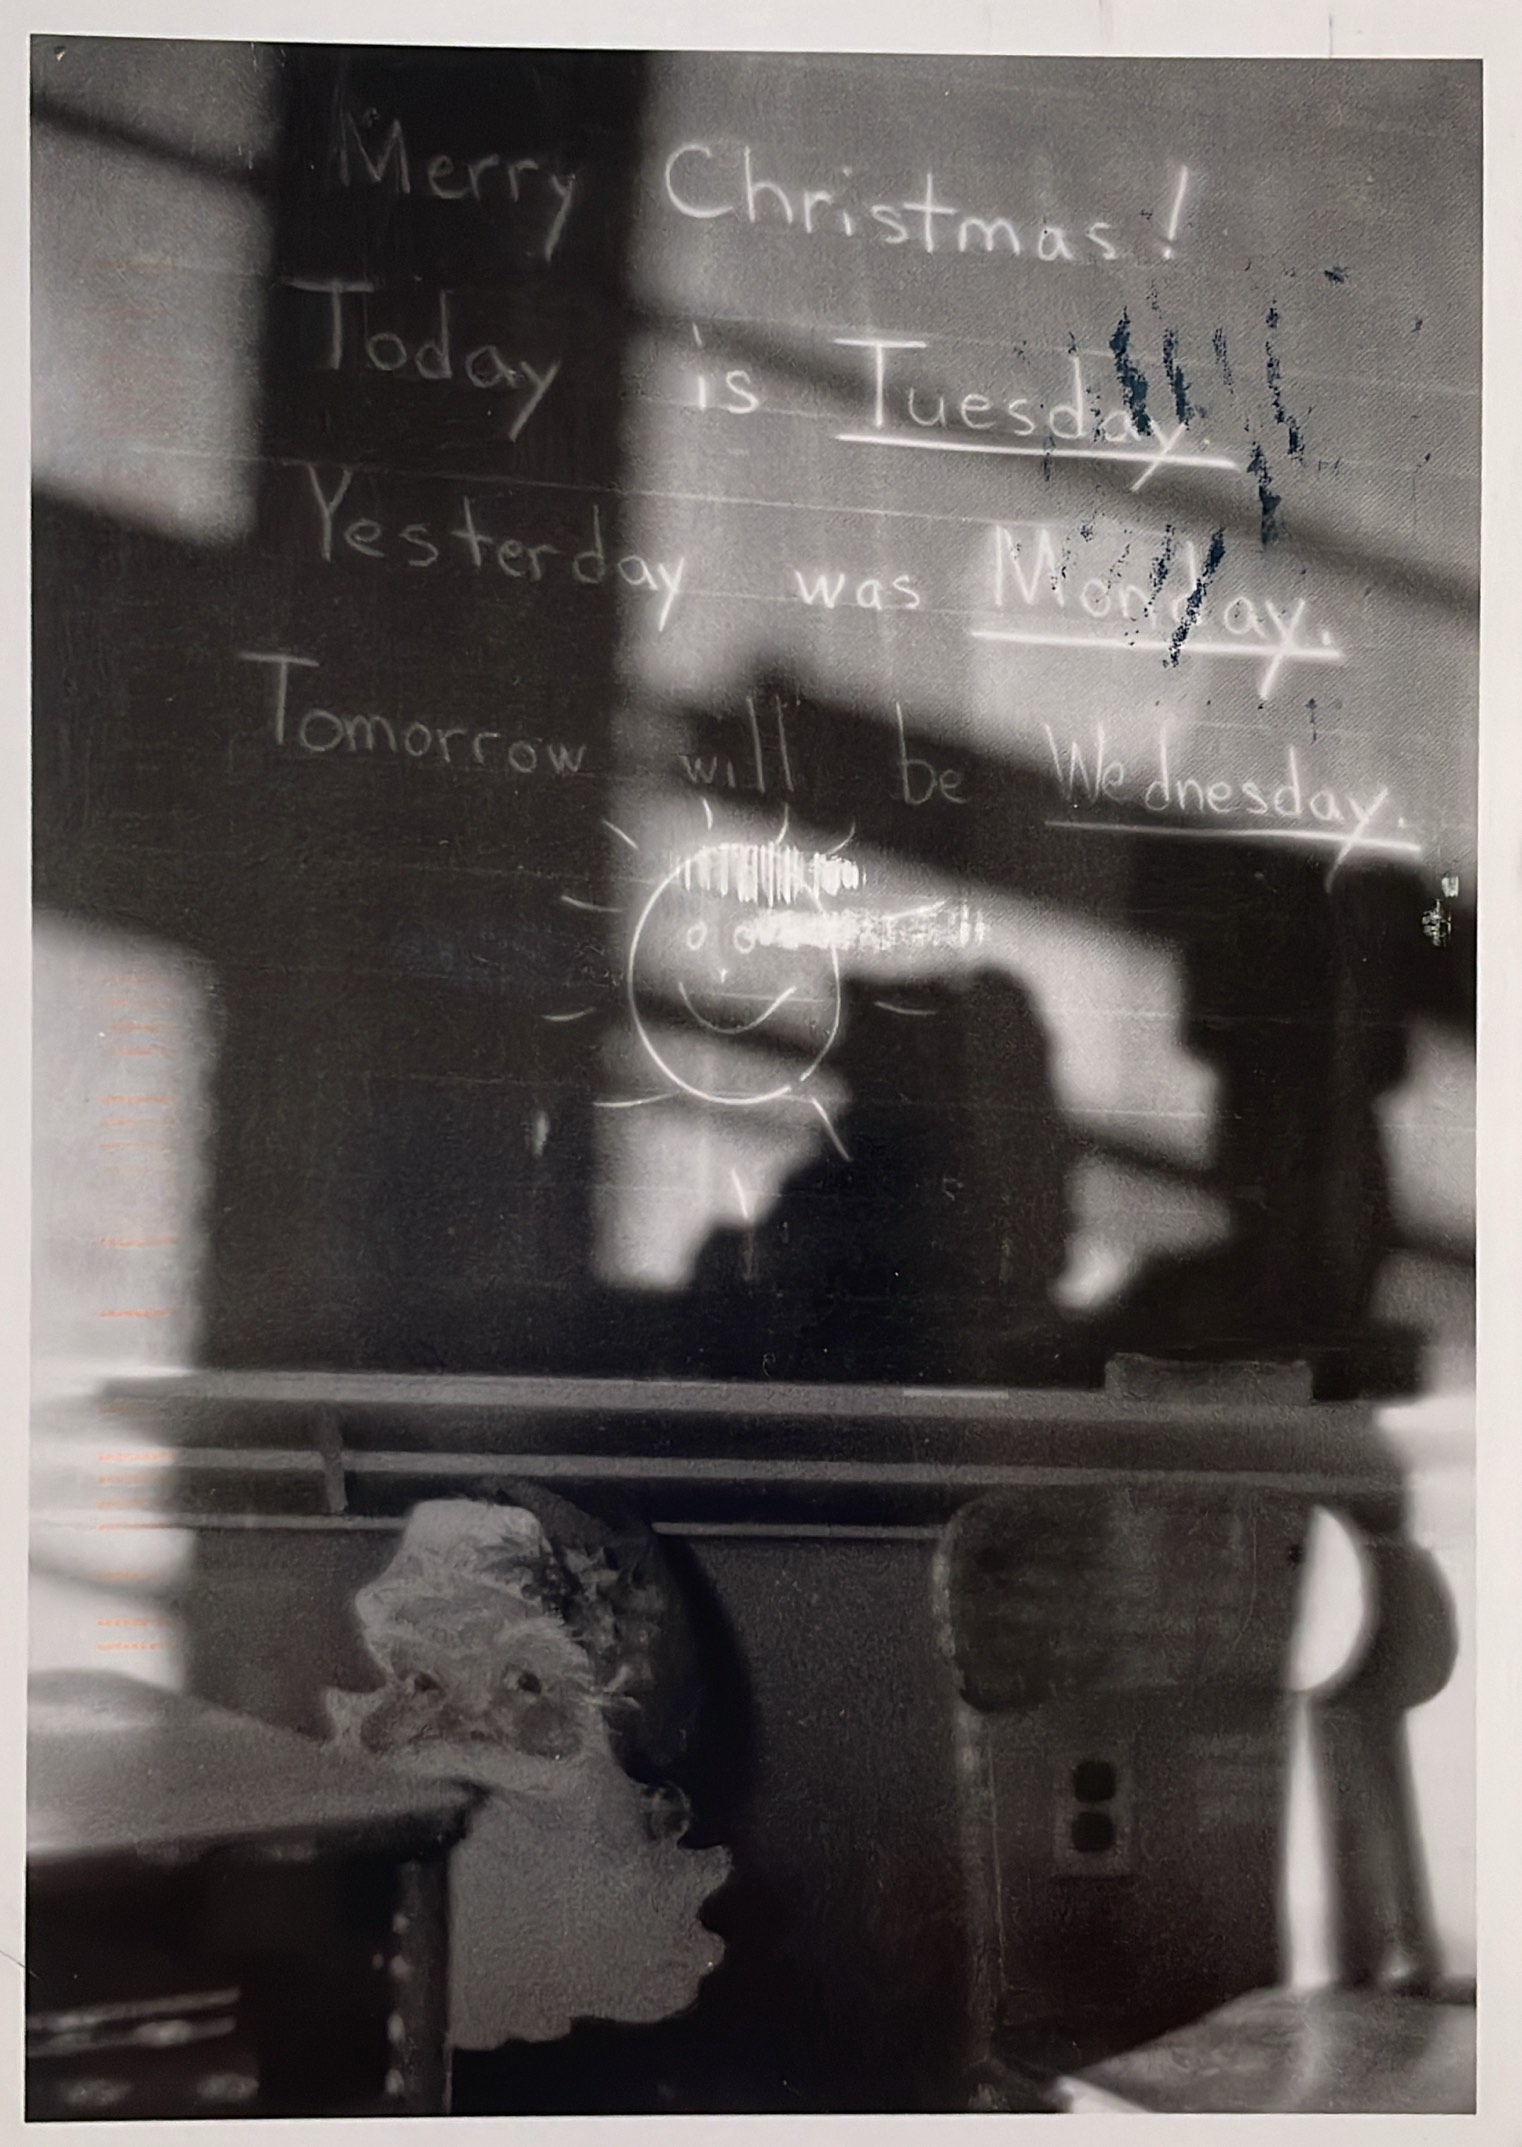 Merry Christmas!
Today is Tuesday.
Yesterday was Monday.
Tomorrow will be Wednesday.